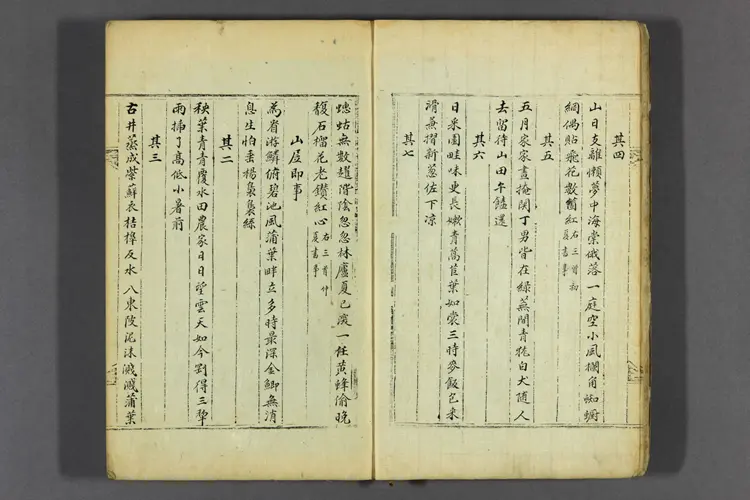 其四
山日支離懶夢中海棠俄落一庭空小風欄角蜘蛛
網偶貼飛花數箇紅右三首初夏書事
其五
五月家家晝掩関丁男皆在綠蕪間青㹱白犬随人
去留待山田午饁還
其六
日采園畦味更長嫩青萵苣葉如裳三時麥飯包來
滑兼搊新葱佐下凉
其七
蟪蛄無數趯階陰忽忽林廬夏已深一任黄蜂偷晚
馥石榴花老鑚紅心右三首仲夏書事
山居即事
為看游鱗俯碧池風蒲葉畔立多時最深金鯽無消
息生怕垂楊裊裊絲
其二
秧葉青青覆水田農家日日望雲天如今劚得三犂
雨揷了髙低小暑前
其三
古井蒸成紫蘇衣桔槹反水八東陂泥沫濺濺蒲葉